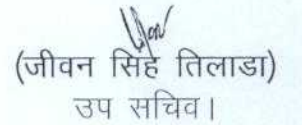 (जीवन सिंह तिलाडा)
उप सचिव।